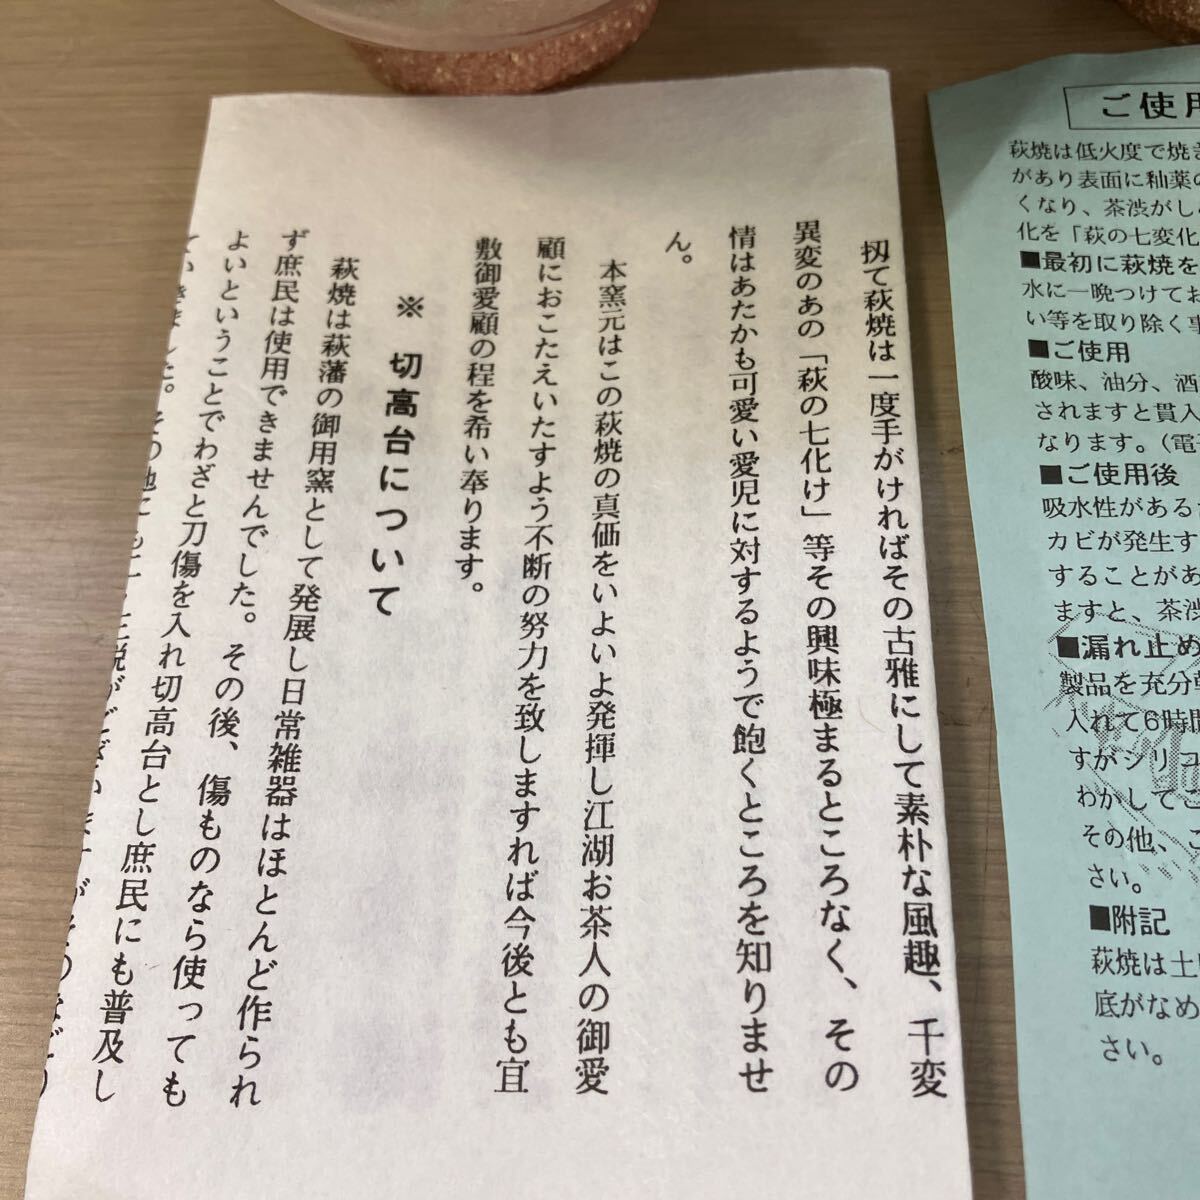 扨て萩焼は一度手がければその古雅にして素朴な風趣、千変
異変のあの「萩の七化け」等その興味極まるところなく、その
情はあたかも可愛い愛児に対するようで飽くところを知りませ
ん。
本窯元はこの萩焼の真価をいよいよ発揮し江湖お茶人の御愛
顧におこたえいたすよう不断の努力を致しますれば今後とも宜
敷御愛顧の程を希い奉ります。
※ 切高台について
萩焼は萩藩の御用窯として発展し日常雑器はほとんど作られ
ず庶民は使用できませんでした。その後、傷ものなら使っても
よいということでわざと刀傷を入れ切高台とし庶民にも普及し
ていきました。その他にも
ご使用
萩焼は低火度で焼き
があり表面に釉薬の
くなり、茶渋がし
化を「萩の七変化
■最初に萩焼を
水に一晩つけてお
い等を取り除く事
■ご使用
酸味、油分、酒
されますと貫入
なります。(電子
■ご使用後
吸水性がある
カビが発生す
することがあ
ますと、茶渋
■漏れ止め
製品を充分乾
入れて6時間
すがシリコ
わかしてご
その他、こ
さい。
■附記
萩焼は土
底がなめ
さい。